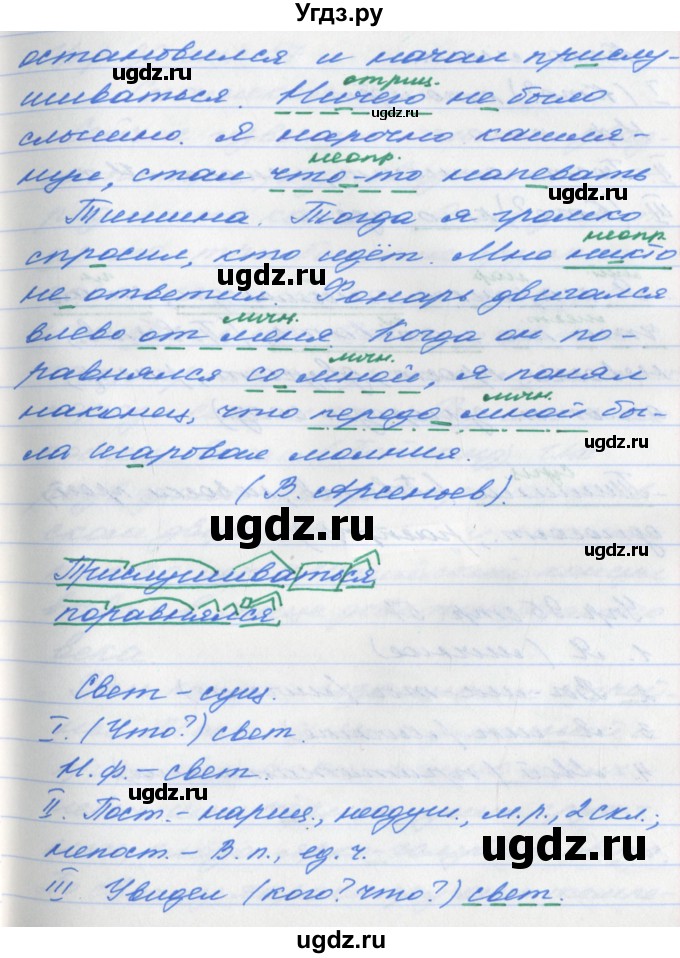 Угдз.ру
остановился и начал прислу-
ugdz.ru
шиваться. Ничего не было
отриц.
ugdz.ru
слышно. Я нарочно кашля-
нул, стал что-то напевать
неопр.
ugdz.ru
Тишина. Тогда я громко
спросил, кто идёт. Мне некто
неопр.
ugdz.ru
не ответил. Фонарь двигался
влево от меня. Когда он по-
личн.
равнялся со мной, я понял
личн.
наконец, что передо мной бы-
личн.
ugdz.ru
ла шаровая молния.
(В. Арсеньев).
ugdz.ru
ugdz.ru
Прислушиваться
поравнялся.
Свет – сущ.
I. (Что?) свет.
Н.ф. – свет.
ugdz.ru
II. Пост. – нариц., неодуш., м.р., 2 скл.;
непост. – В.п., ед.ч.
ugdz.ru
III Увидел (кого? что?) свет.
ugdz.ru